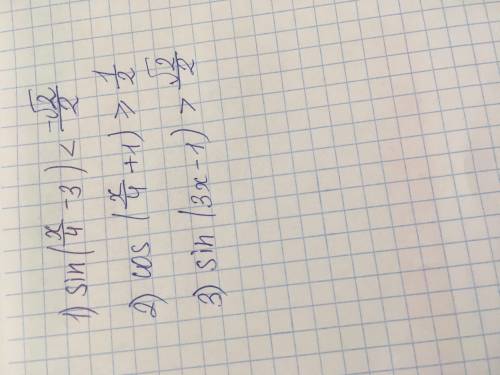 1) sin(x/4 - 3) < -√2/2
2) cos(x/4 + 1) ⩾ 1/2
3) sin(3x - 1) > √2/2